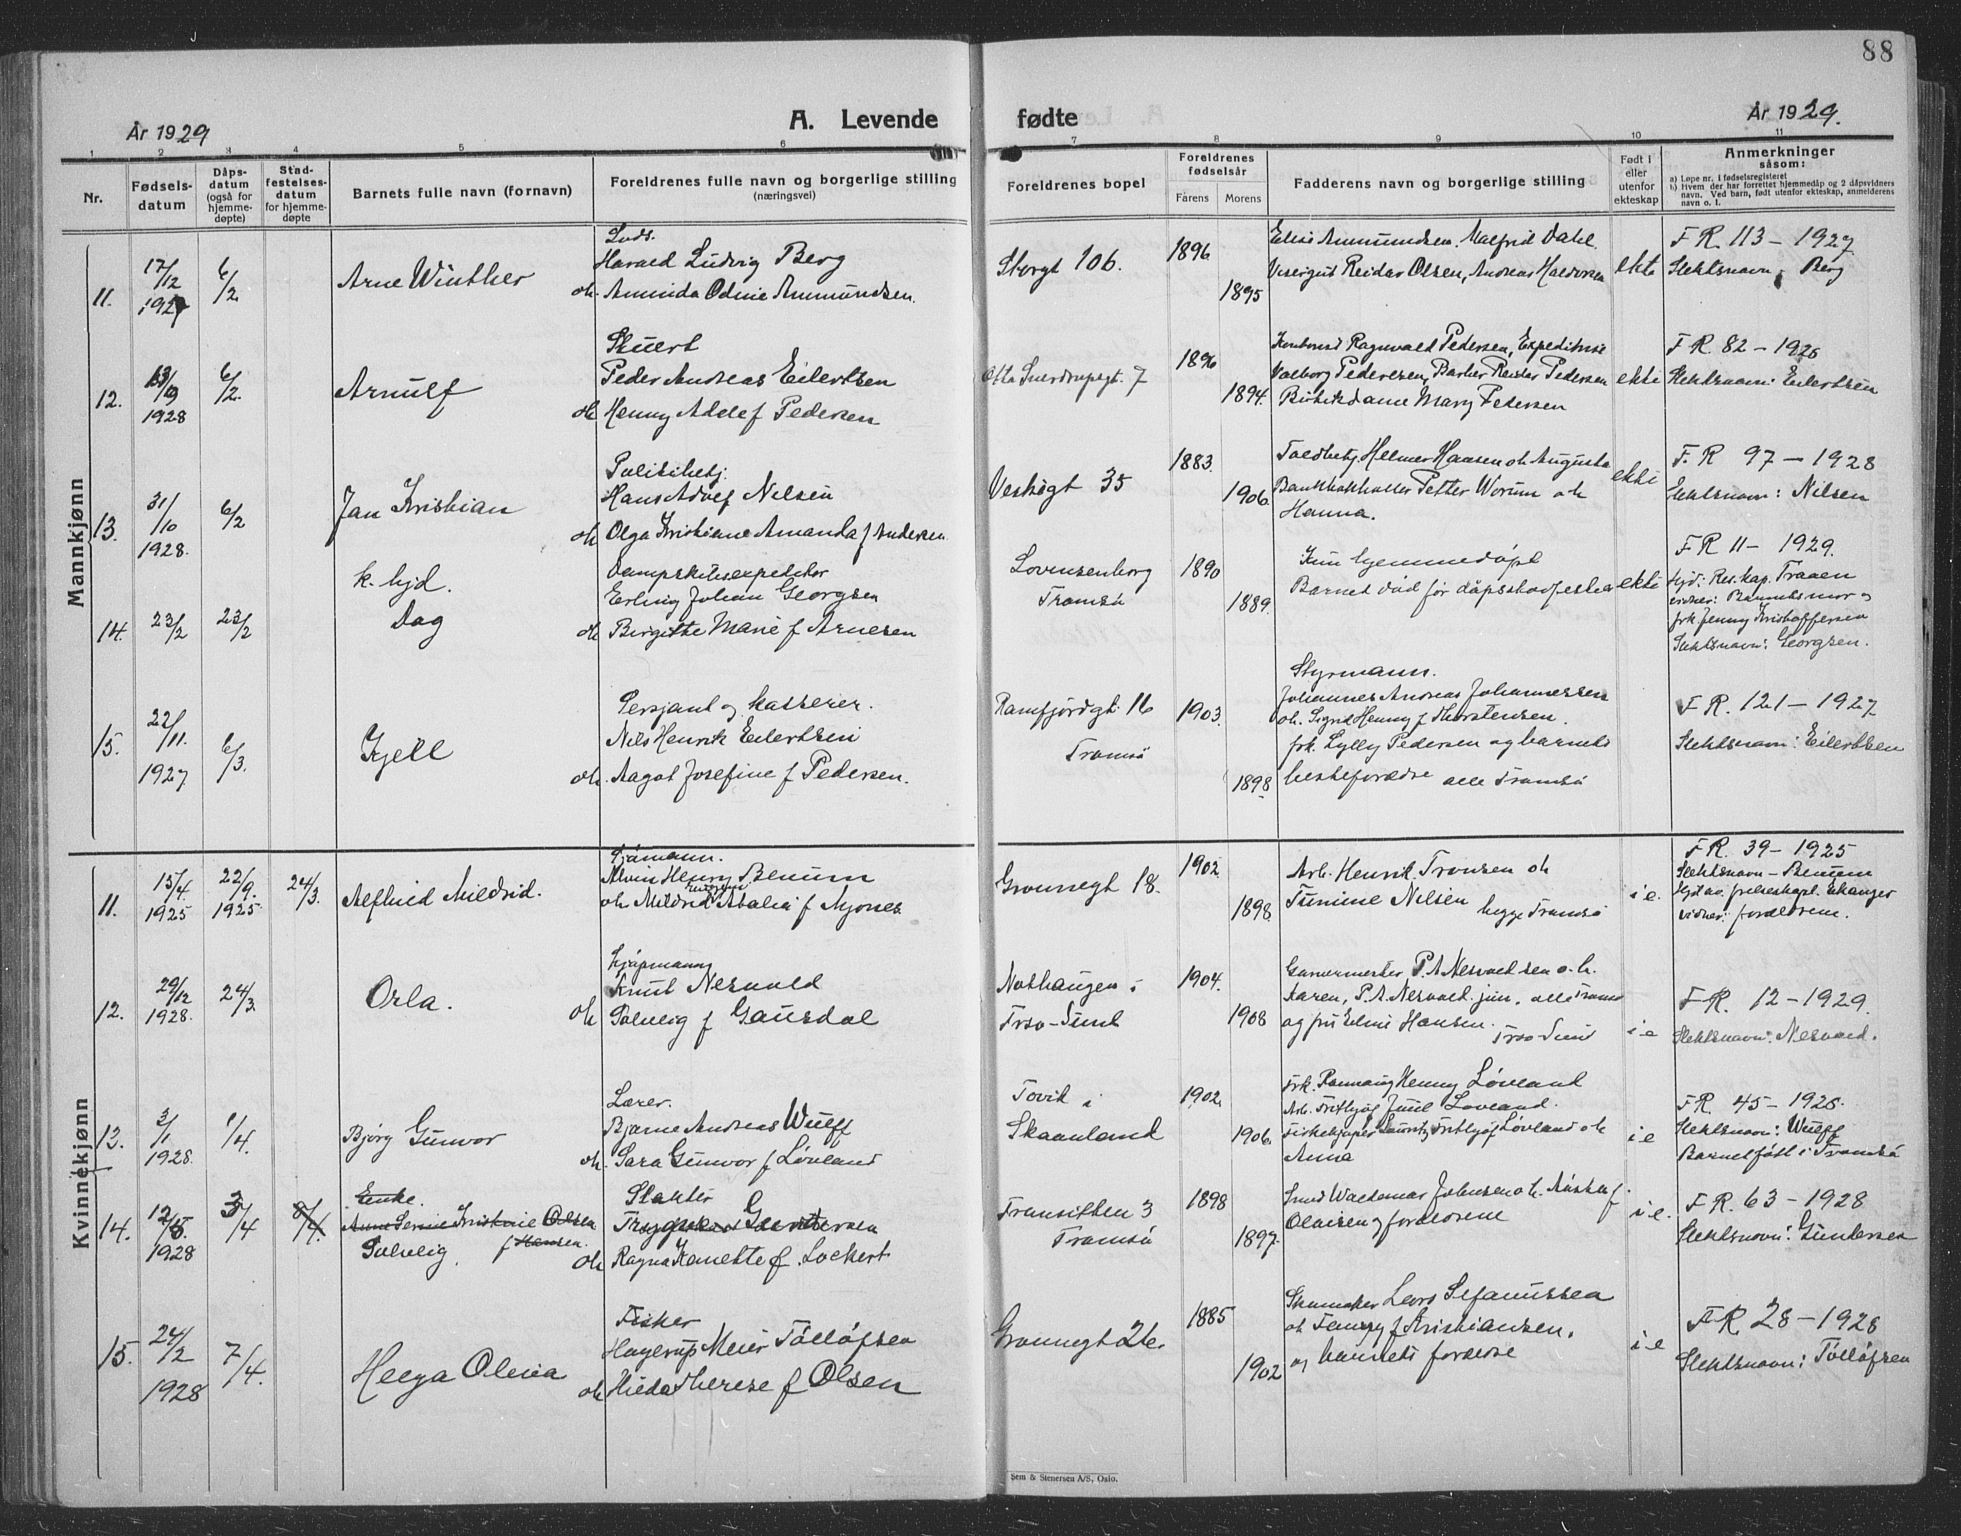 88
År 1929
A. Levende fødte
År 1929.
1 2 3 4 5 6 7 8 9 10 11
Nr.
Fødsels-
datum
Dåps-
datum
(også for
hjemme-
døpte)
Stad-
festelses-
datum
for hjemme-
døpte
Barnets fulle navn (fornavn)
Foreldrenes fulle navn og borgerlige stilling
(næringsvei)
Foreldrenes bopel
Foreldrenes
fødselsår
Farens Morens
Fadderens navn og borgerlige stilling
Født i
eller
utenfor
ekteskap
Anmerkninger
såsom:
a) Løpe nr. i fødselsregisteret
b) Hvem der har forrettet hjemmedåp og 2 dåpsvidners
navn. Ved barn, født utenfor ekteskap, anmelderens
navn o. l.
Mannkjønn
11.
17/12
1927
6/2
Arne Winther
Lods.
Harald Ludvig Berg
oh. Aminda Odine Ammundsen.
Storgt 106.
1896
1895
Elise Ammundsen. Malfrid Dahl.
Visergut Reidar Olsen, Andreas Haldorsen
ekte
F R. 113 - 1927
Slektsnavn: Berg
12.
13/9
1928
6/2.
Arnulf
Stuert
Peder Andreas Eilertsen
oh Henny Adele f Pedersen
Otto Sverdrupsgt. 7
1896
1894.
Kontorist Ragnvald Pedersen, Expeditrise
Valborg Pedersen, Barber Reidar Pedersen
Butikdame Mary Pedersen
ekte
F R. 82 - 1928
Slektsnavn: Eilertsen
13.
31/10
1928.
6/2
Jan Kristian
Politibetj.
Hans Adolf Nilsen
oh Olga Kristiane Amanda f Andersen
Vestregt 35
1883.
1906.
Toldbetj Helmer Hansen oh Augusta
Bankbokholder Petter Worum oh
Hanna.
ekte
F. R 97 - 1928
Slektsnavn: Nilsen
14.
23/2
23/2
k. hjd.
Dag
Dampskibsexpeditør
Erling Johan Georgsen
oh Birgitte Marie f Arnesen
Lorensenborg
Tromsø
1890
1889.
Kun hjemmedøpt
Barnet død før dåpsstadfestelse
ekte
F R 11 - 1929.
Hjd: Res. kap. Traaen
vidner: Barnets mor og
frk. Jenny Kristoffersen
Slektsnavn: Georgsen.
15.
22/11.
1927
6/3.
Kjell
Sersjant og kasserer.
Nils Henrik Eilertsen
oh. Aagot Josefine f Pedersen.
Ramfjordgt 16
Tromsø
1903.
1898
Styrmann.
Johannes Andreas Johannessen
oh. Signe Henny f Thorstensen.
frk. Lylly Pedersen og barnets
besteforeldre alle Tromsø
F R. 121 - 1927
Slektsnavn: Eilertsen
Kvinnekjønn
11.
15/4
1925
22/9.
1925
24/3.
Alfhild Mildrid.
Sjømann.
Alvin Henry Benum
oh Mildrid Atalie f Mjones
Grønnegt 18.
1902.
1898.
Arb. Henrik Tronsen oh
Tinine Nilsen begge Tromsø
i e.
F R. 39 - 1925
Slektsnavn - Benum
vidner: foreldrene.
12.
29/12
1928.
24/3
Orla.
Kjøpmann
Knut Nesvold
oh Solveig f Gausdal
Nothaugen i
Trsø-Sund
1904.
1908
Garvermester P. A Nesvold sen o. h.
Karen, P. A. Nesvold jun. alle Tromsø
og fru Eline Hansen. Trsø Sund
i e
F R. 12 - 1929
Slektsnavn: Nesvold.
13.
3/1
1928
1/4.
Bjørg Gunvor
Lærer.
Bjarne Andreas Wulff
oh. Sara Gunvor f Løvland
Tovik i
Skaanland
1902.
1906.
Frk. Rannaug Henny Løvland
Arb. Fritjof Juul Løvland.
Fiskekjøper Lauritz Fritjof Løvland oh
Anna
i e
F R. 45 - 1928.
Slektsnavn: Wulff
Barnet født i Tromsø
14.
1928
3/4
8/4.
Enke.
Anne Serine Kristine Olsen
f Hansen.
Solveig.
Slakter
Trygve Gundersen
oh Ragna Hanette f. Lockert
Transitten 3
Tromsø
1898
1897.
Smed Waldemar Johnsen oh. Aasta f.
Olaisen og foreldrene
i e.
F R. 63 - 1928
Slektsnavn: Gundersen
15.
24/2
1928
7/4.
Helga Olivia
Fisker
Hagerup Meier Tollofsen
oh Hilda Therese f Olsen
Grønnegt 26.
1885
1902
Skomaker Leors Stefanussen
oh Fanny f Kristiansen.
og barnets foreldre
i e
F R. 28 - 1928
Slektsnavn: Tollofsen
Sem & Stenersen A/S, Oslo.